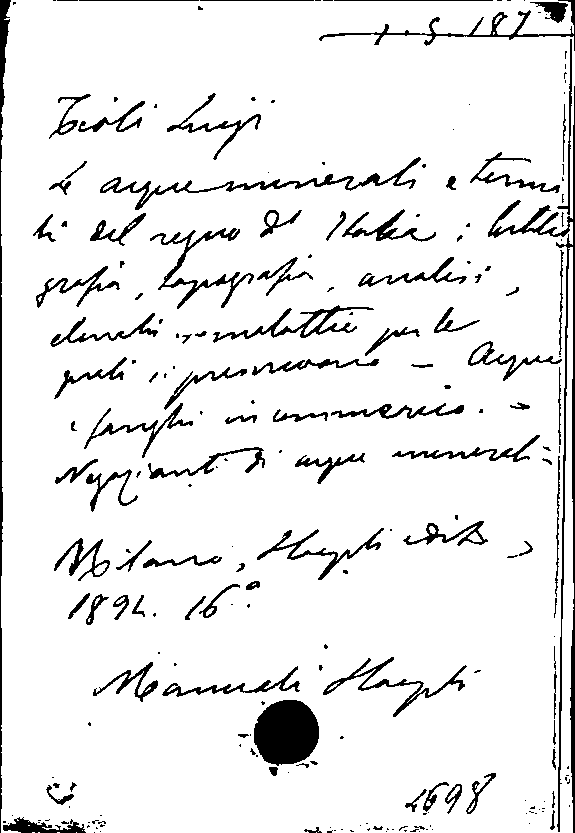 1. 5. 187
Tioli Luigi
Le acque minerali e terma
li del regno d' Italia ;
grafia, topografia, analisi,
elenchi malattie per le
quali si prescrivono — Acque
e fanghi in commercio. —
Negozianti di acque minerali -
Milano, Hoepli edit.,
1894. 16°.
Manuali Hoepli
2698